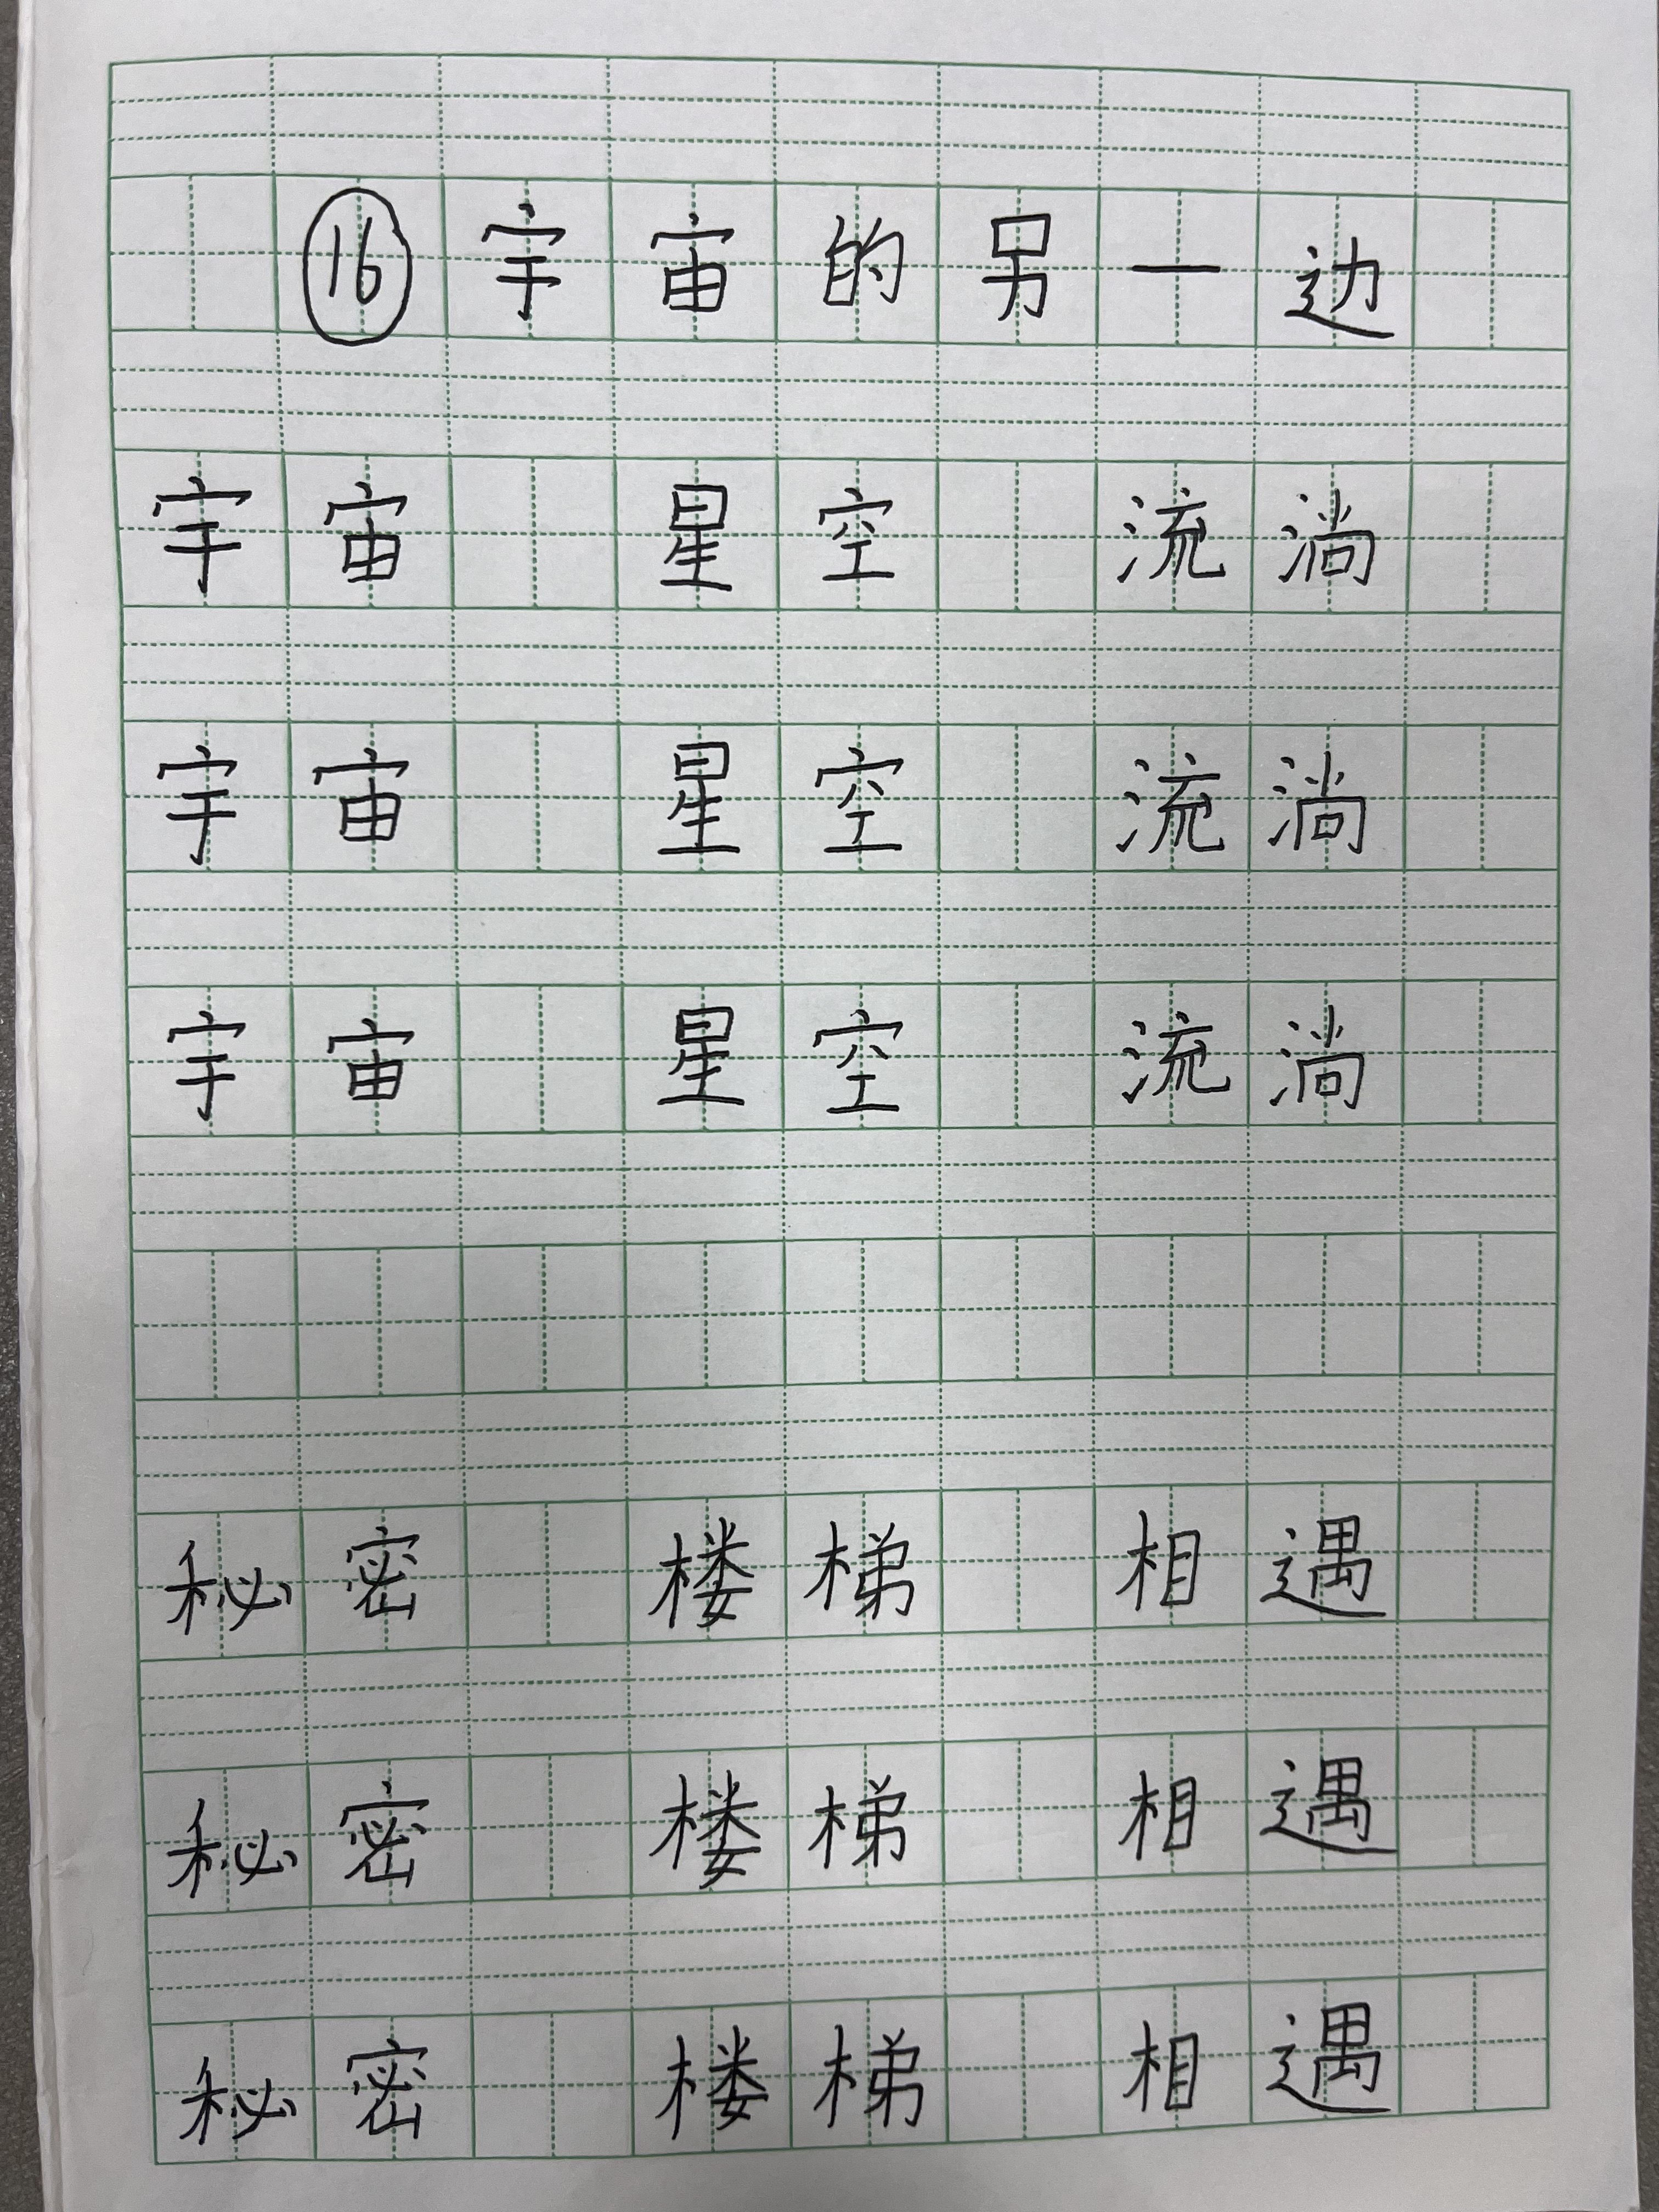 ⑯宇宙的另一边
宇宙 星空 流淌
宇宙 星空 流淌
宇宙 星空 流淌
秘密 楼梯 相遇
秘密 楼梯 相遇
秘密 楼梯 相遇